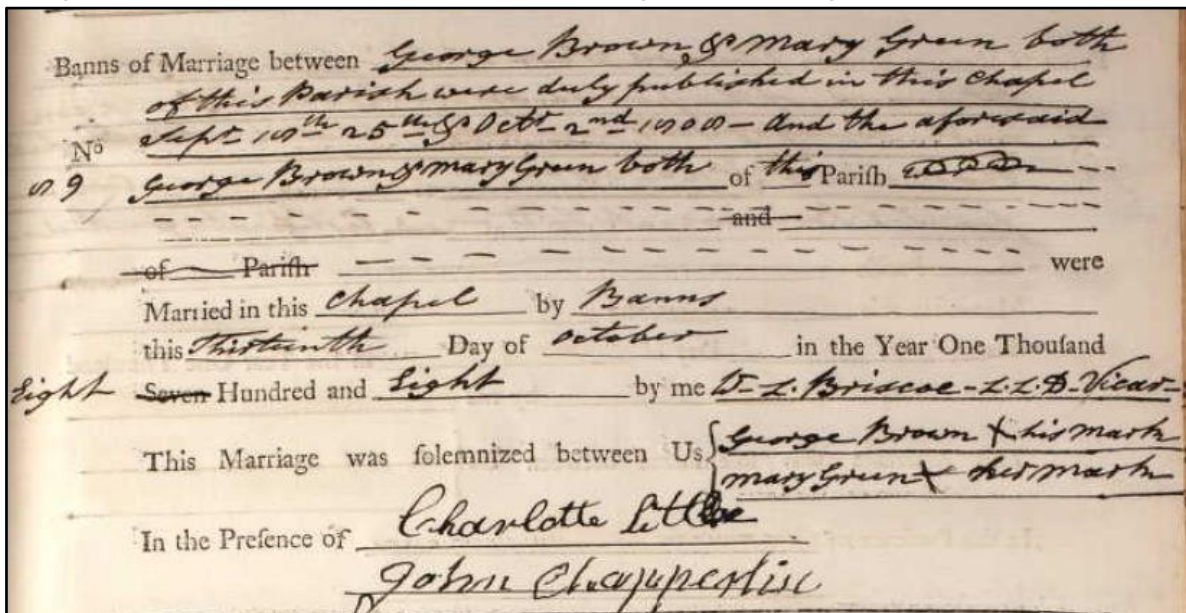 Banns of Marriage between George Brown & Mary Green both
of this Parish were duly published in this Chapel
Sept. 18th 25th & Octr. 2nd 1808 - And the aforesaid
No
89 George Brown & Mary Green both of this Parish
and
of Parish were
Married in this Chapel by Banns
this Thirteenth Day of October in the Year One Thousand
Eight Seven Hundred and Eight by me W. L. Briscoe - L.L.D - Vicar -
This Marriage was solemnized between Us George Brown X his mark
Mary Green X her mark
In the Presence of Charlotte
John